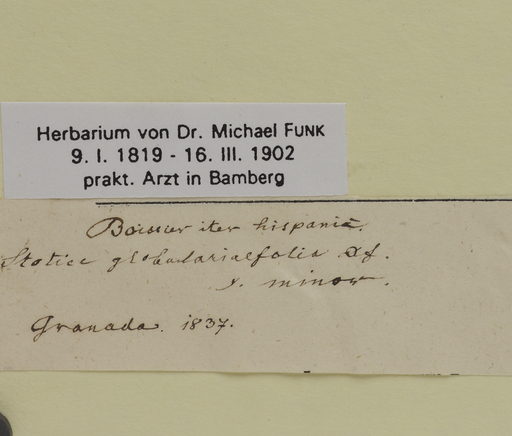 Herbarium von Dr. Michael FUNK
9. I. 1819 - 16. III. 1902
prakt. Arzt in Bamberg
Boissier iter hispanic.
Statice globulariaefolia Df.
γ. minor.
Granada. 1837.